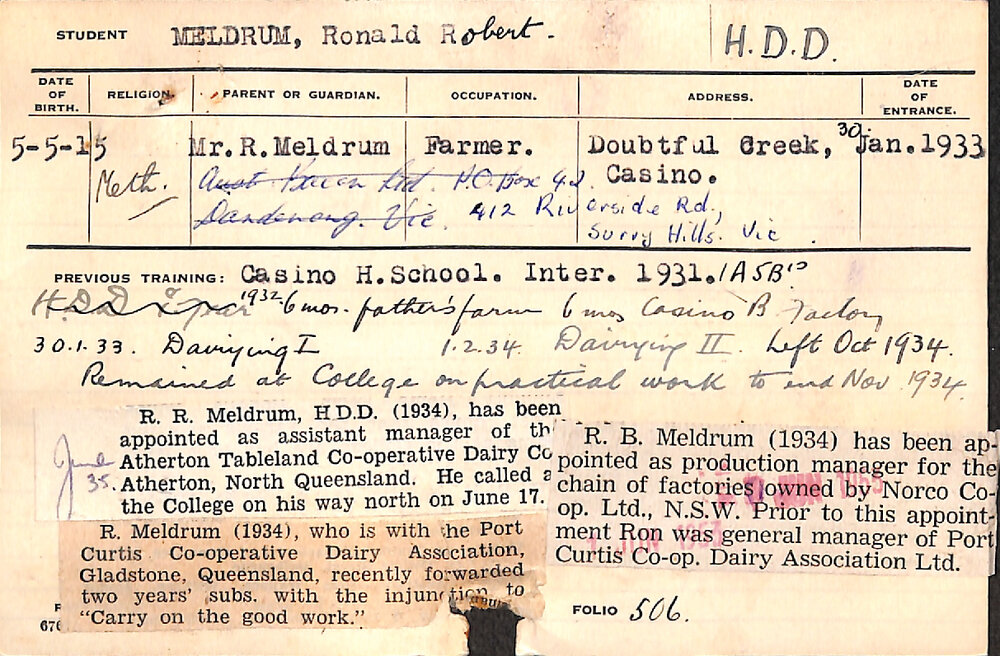 STUDENT MELDRUM, Ronald Robert. H.D.D.
DATE OF BIRTH. RELIGION. PARENT OR GUARDIAN. OCCUPATION. ADDRESS. DATE OF ENTRANCE.
5-5-15 Mr.R.Meldrum Farmer. Doubtful Creek, 30 Jan.1933
Meth. Aust Bacon Ltd. P.O. Box 42. Casino.
Dandenong. Vic. 412 Riverside Rd.,
Surry Hills. Vic.
PREVIOUS TRAINING: Casino H.School. Inter. 1931. 1A5B's
H.D.D. 1932. 6 mos. father's farm 6 mos Casino B Factory
30.1.33. Dairying I 1.2.34. Dairying II. Left Oct 1934.
Remained at College on practical work to end Nov 1934.
R. R. Meldrum, H.D.D. (1934), has been
appointed as assistant manager of th
Atherton Tableland Co-operative Dairy Co
Atherton, North Queensland. He called a
the College on his way north on June 17.
June 35.
R. Meldrum (1934), who is with the Port
Curtis Co-operative Dairy Association,
Gladstone, Queensland, recently forwarded
two years' subs. with the injunction to
"Carry on the good work."
R. B. Meldrum (1934) has been ap-
pointed as production manager for the
chain of factories owned by Norco Co-
op. Ltd., N.S.W. Prior to this appoint-
ment Ron was general manager of Port
Curtis Co-op. Dairy Association Ltd.
FOLIO 506.